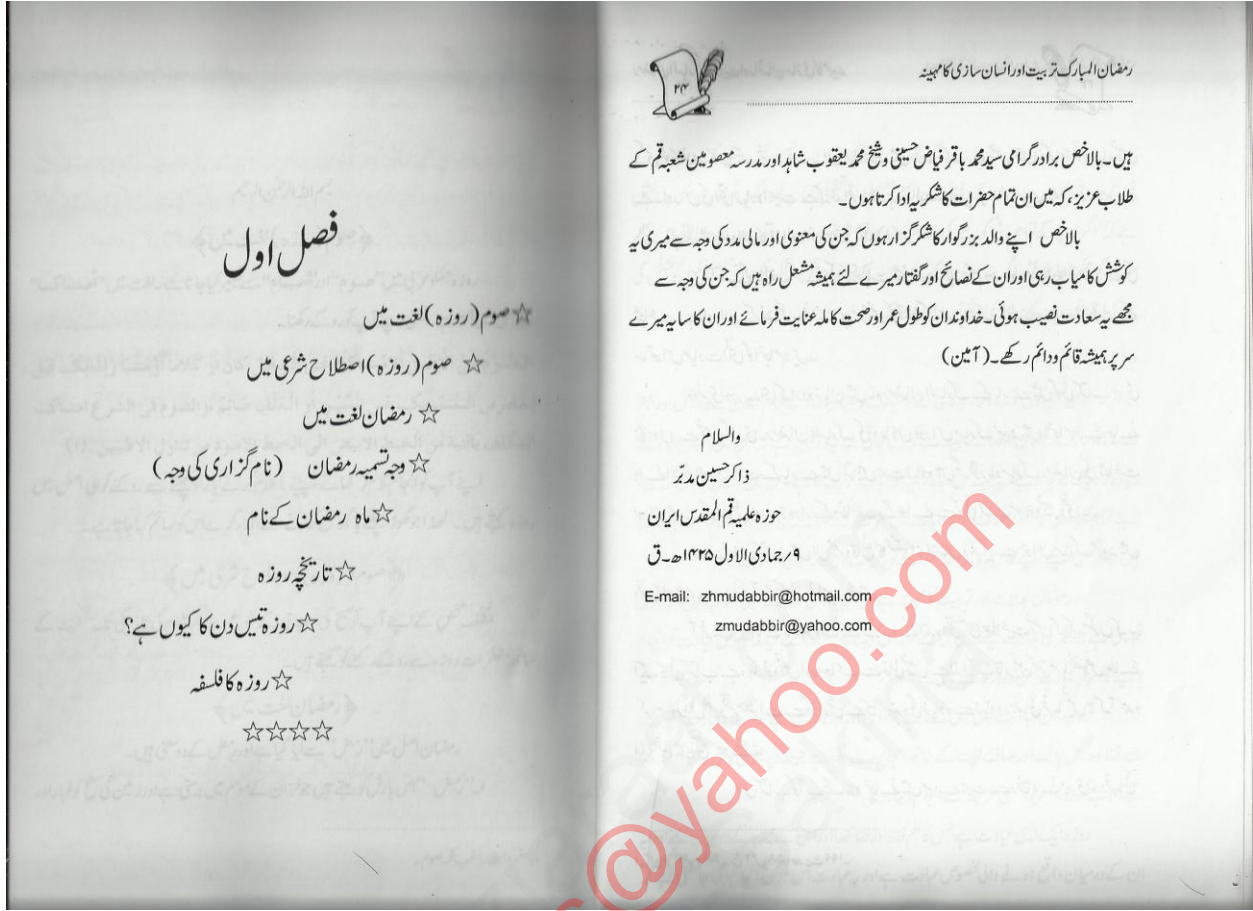 رمضان المبارک تربیت اور انسان سازی کا مہینہ
۲۴
ہیں۔ بالاخص برادر گرامی سید محمد باقر فیاض حسینی و شیخ محمد یعقوب شاہد اور مدرسہ معصومین شعبہ قم کے
طلاب عزیز، کہ میں ان تمام حضرات کا شکریہ ادا کرتا ہوں۔
بالاخص اپنے والد بزرگوار کا شکر گزار ہوں کہ جن کی معنوی اور مالی مدد کی وجہ سے میری یہ
کوشش کامیاب رہی اور ان کے نصائح اور گفتار میرے لئے ہمیشہ مشعل راہ ہیں کہ جن کی وجہ سے
مجھے یہ سعادت نصیب ہوئی۔ خداوند ان کو طول عمر اور صحت کاملہ عنایت فرمائے اور ان کا سایہ میرے
سر پر ہمیشہ قائم و دائم رکھے۔ (آمین)
والسلام
ذاکر حسین مدبّر
حوزہ علمیہ قم المقدس ایران
۹/ جمادی الاول ۱۴۲۵ھ۔ق
E-mail: zhmudabbir@hotmail.com
zmudabbir@yahoo.com
فصل اول
☆ صوم (روزہ) لغت میں
☆ صوم (روزہ) اصطلاح شرعی میں
☆ رمضان لغت میں
☆ وجہ تسمیہ رمضان (نام گزاری کی وجہ)
☆ ماہ رمضان کے نام
☆ تاریخچہ روزہ
☆ روزہ تیس دن کا کیوں ہے؟
☆ روزہ کا فلسفہ
☆☆☆☆
@yahoo.com